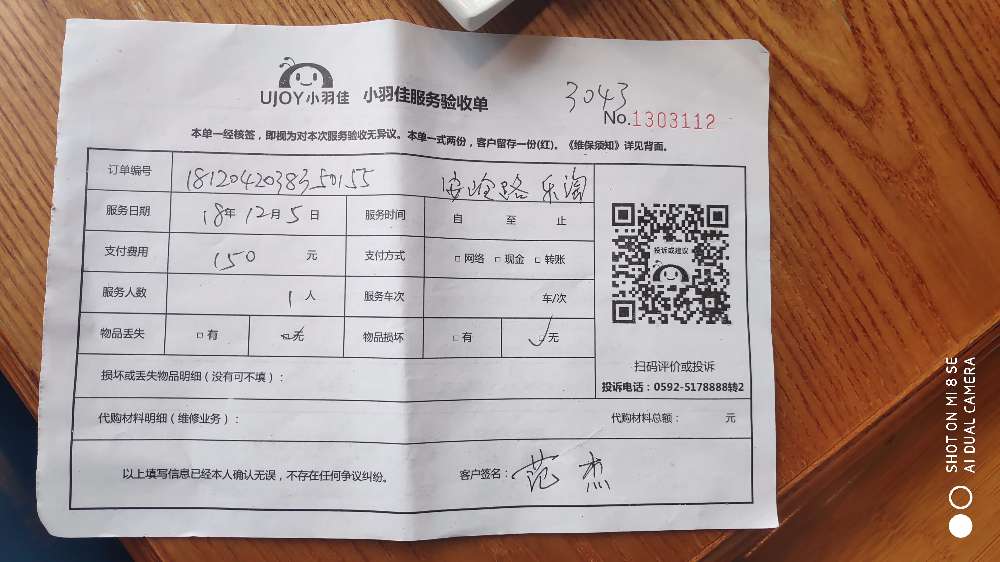 3043
UJOY小羽佳 小羽佳服务验收单
No.1303112
本单一经核签，即视为对本次服务验收无异议。本单一式两份，客户留存一份(红)。《维保须知》详见背面。
订单编号 1812042038350155 安岭路 乐淘
服务日期 18年12月5日 服务时间 自 至 止
支付费用 150 元 支付方式 □网络 □现金 □转账
投诉或建议
服务人数 1人 服务车次 车/次
物品丢失 □有 □无 物品损坏 □有 ✓无
扫码评价或投诉
损坏或丢失物品明细（没有可不填）：
投诉电话：0592-5178888转2
代购材料明细（维修业务）： 代购材料总额： 元
以上填写信息已经本人确认无误，不存在任何争议纠纷。 客户签名：范杰
SHOT ON MI 8 SE
AI DUAL CAMERA